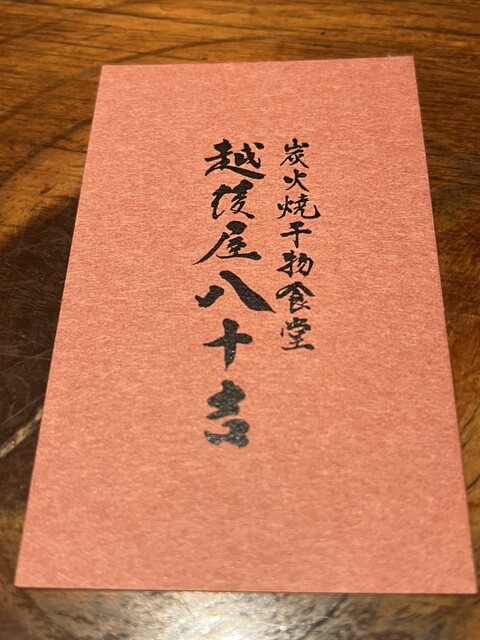 炭火焼干物食堂
越後屋八十吉